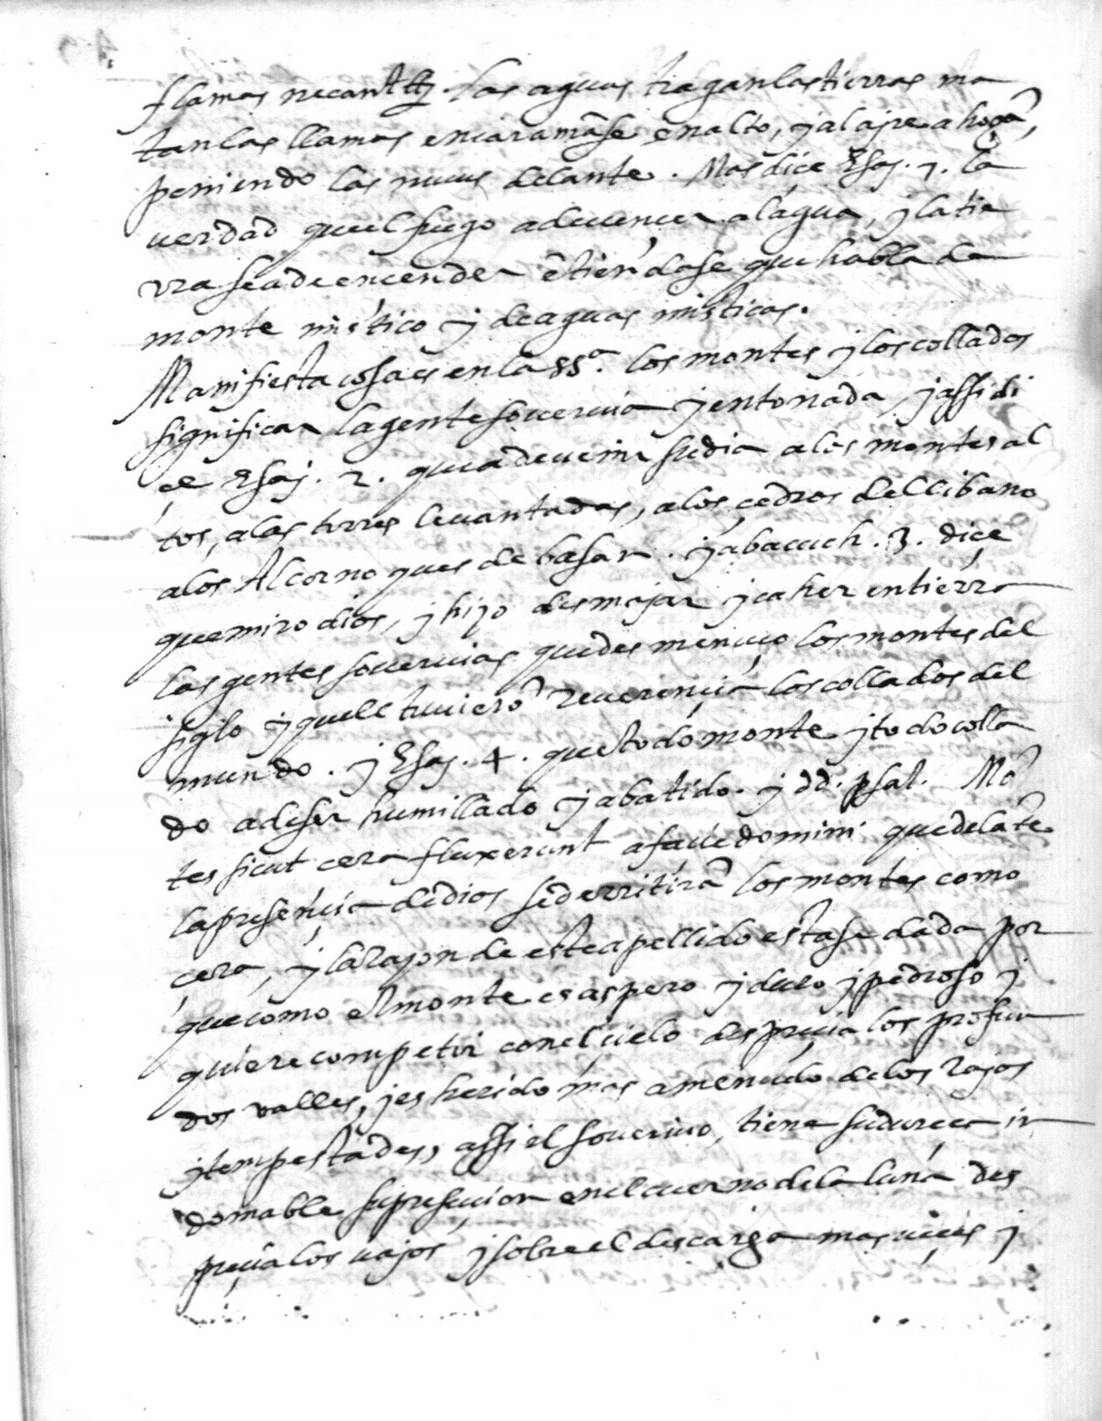 flamas necant &c. las aguas tragan las tierras ma
tan las llamas encaramãse en alto, y al ajre ahogã,
poniendo las nuues delante. Mas dice Esaj. 7. la
uerdad que el fuego a de uencer al agua, y la tie
rra se a de encender ẽtiendase que habla de
monte místico y de aguas místicas.
Manifiesta cosa es en la ssª. los montes y los collados
significan la gente soueruia y entonada, y assi di
ce Esaj. 2. que a de uenir su dia a los montes al
tos, a las torres leuantadas, a los cedros del libano
a los Alcornoques de basan. y abacuch. 3. diçe
que miro dios, y hizo desmajar y caher en tierra
las gentes soueruias que desmenuço los montes del
siglo y que le tuuierõ reuerençia los collados del
mundo. y Esaj. 4. que todo monte y todo colla
do a de ser humillado y abatido. y dd. psal. Mõ
tes sicut cera fluxerunt a facie domini que delãte
la presençia de dios se derritirã los montes como
cera, y la razon de este apellido esta se dada por
que como el monte es aspero y duro y pedroso y
quiere competir con el çielo despreçia los profun
dos valles, y es herido mas a menudo de los rajos
y tempestades, assi el soueruio, tiene su dureça in
domable su presunçion en el cuerno de la luna des
preçia los uajos y sobre el descarga mas ueçes y